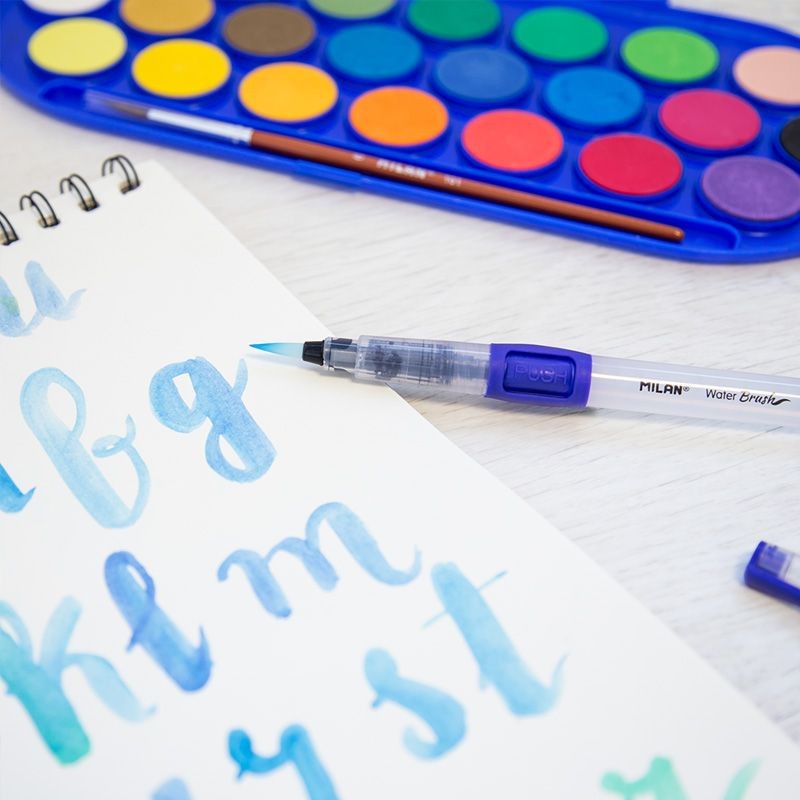 MILAN 121
PUSH
MILAN® Water Brush
u
b g
k l m
r s t
y